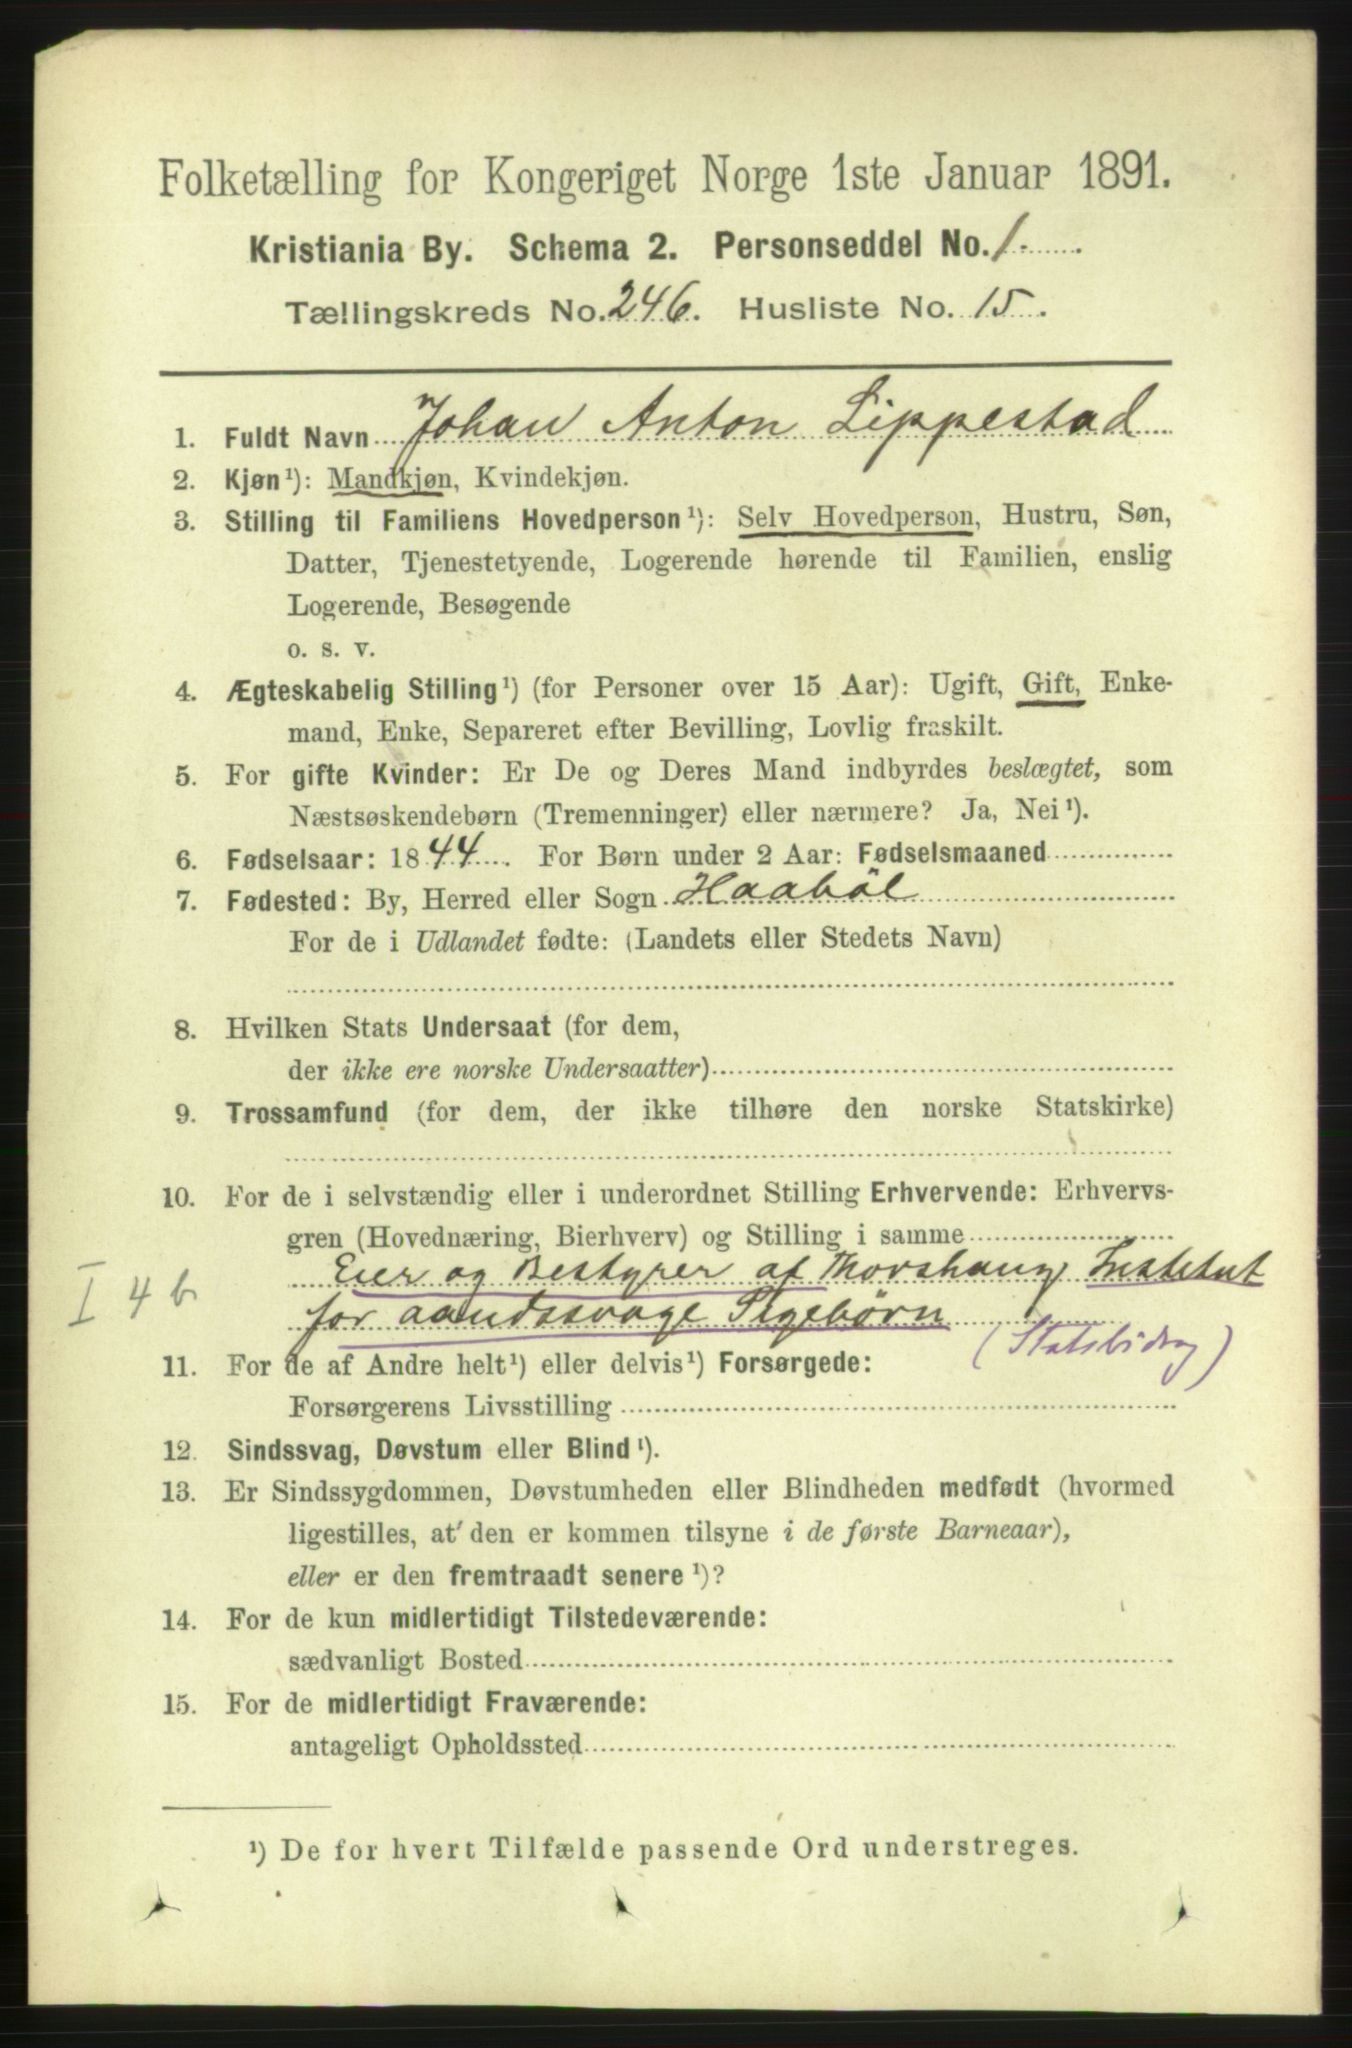 Folketælling for Kongeriget Norge 1ste Januar 1891.
Kristiania By. Schema 2. Personseddel No. 1.
Tællingskreds No. 246. Husliste No. 15.
1. Fuldt Navn Johan Anton Lippestad
2. Kjøn¹): Mandkjøn, Kvindekjøn.
3. Stilling til Familiens Hovedperson¹): Selv Hovedperson, Hustru, Søn,
Datter, Tjenestetyende, Logerende hørende til Familien, enslig
Logerende, Besøgende
o. s. v.
4. Ægteskabelig Stilling¹) (for Personer over 15 Aar): Ugift, Gift, Enke-
mand, Enke, Separeret efter Bevilling, Lovlig fraskilt.
5. For gifte Kvinder: Er De og Deres Mand indbyrdes beslægtet, som
Næstsøskendebørn (Tremenninger) eller nærmere? Ja, Nei¹).
6. Fødselsaar: 1844. For Børn under 2 Aar: Fødselsmaaned
7. Fødested: By, Herred eller Sogn Haaböl
For de i Udlandet fødte: (Landets eller Stedets Navn)
8. Hvilken Stats Undersaat (for dem,
der ikke ere norske Undersaatter)
9. Trossamfund (for dem, der ikke tilhøre den norske Statskirke)
10. For de i selvstændig eller i underordnet Stilling Erhvervende: Erhvervs-
gren (Hovednæring, Bierhverv) og Stilling i samme
Eier og Bestyrer af Thorshaug Institut
I 4 b
for aandssvage Pigebørn
(Statsbidrag)
11. For de af Andre helt¹) eller delvis¹) Forsørgede:
Forsørgerens Livsstilling
12. Sindssvag, Døvstum eller Blind¹).
13. Er Sindssygdommen, Døvstumheden eller Blindheden medfødt (hvormed
ligestilles, at den er kommen tilsyne i de første Barneaar),
eller er den fremtraadt senere¹)?
14. For de kun midlertidigt Tilstedeværende:
sædvanligt Bosted
15. For de midlertidigt Fraværende:
antageligt Opholdssted
¹) De for hvert Tilfælde passende Ord understreges.